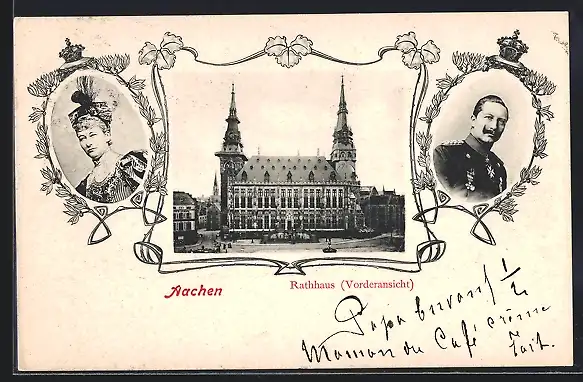 Aachen
Rathhaus (Vorderansicht)
Papa buvant 1/2
Maman du Café crème